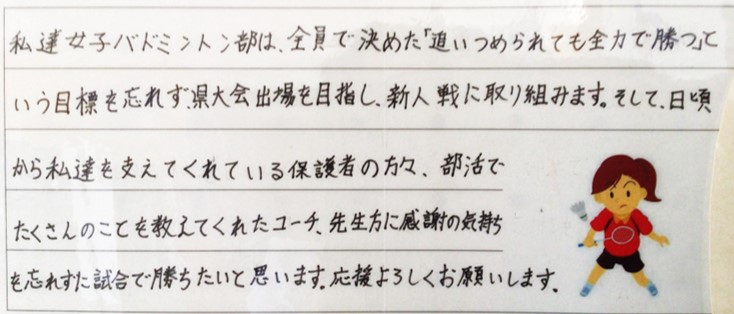 私達女子バドミントン部は、全員で決めた「追いつめられても全力で勝つ」と
いう目標を忘れず、県大会出場を目指し、新人戦に取り組みます。そして、日頃
から私達を支えてくれている保護者の方々、部活で
たくさんのことを教えてくれたコーチ、先生方に感謝の気持ち
を忘れずに試合で勝ちたいと思います。応援よろしくお願いします。